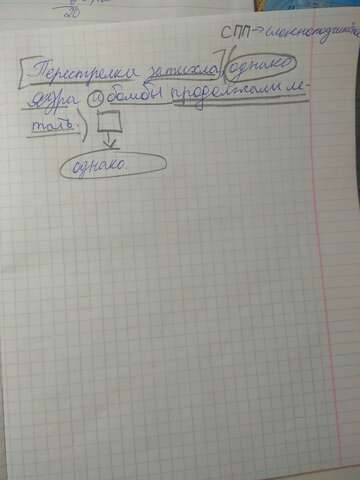 20
СПП→сложноподчинён
[Перестрелка затихла], (однако
ядра и бомбы продолжали ле-
тать.)
однако